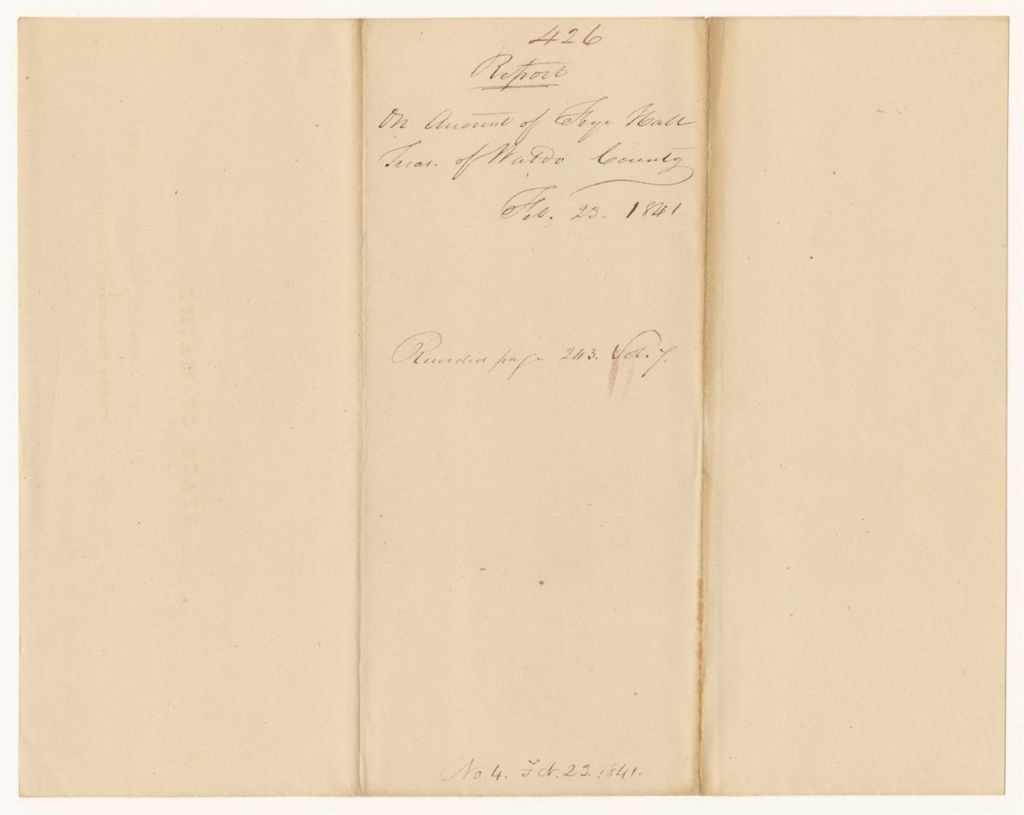 426
Report
On Account of Frye Hall
Treas. of Waldo County
Feb. 23. 1841
Recorded page 243. Vol. 7.
No. 4. Feb. 23. 1841.